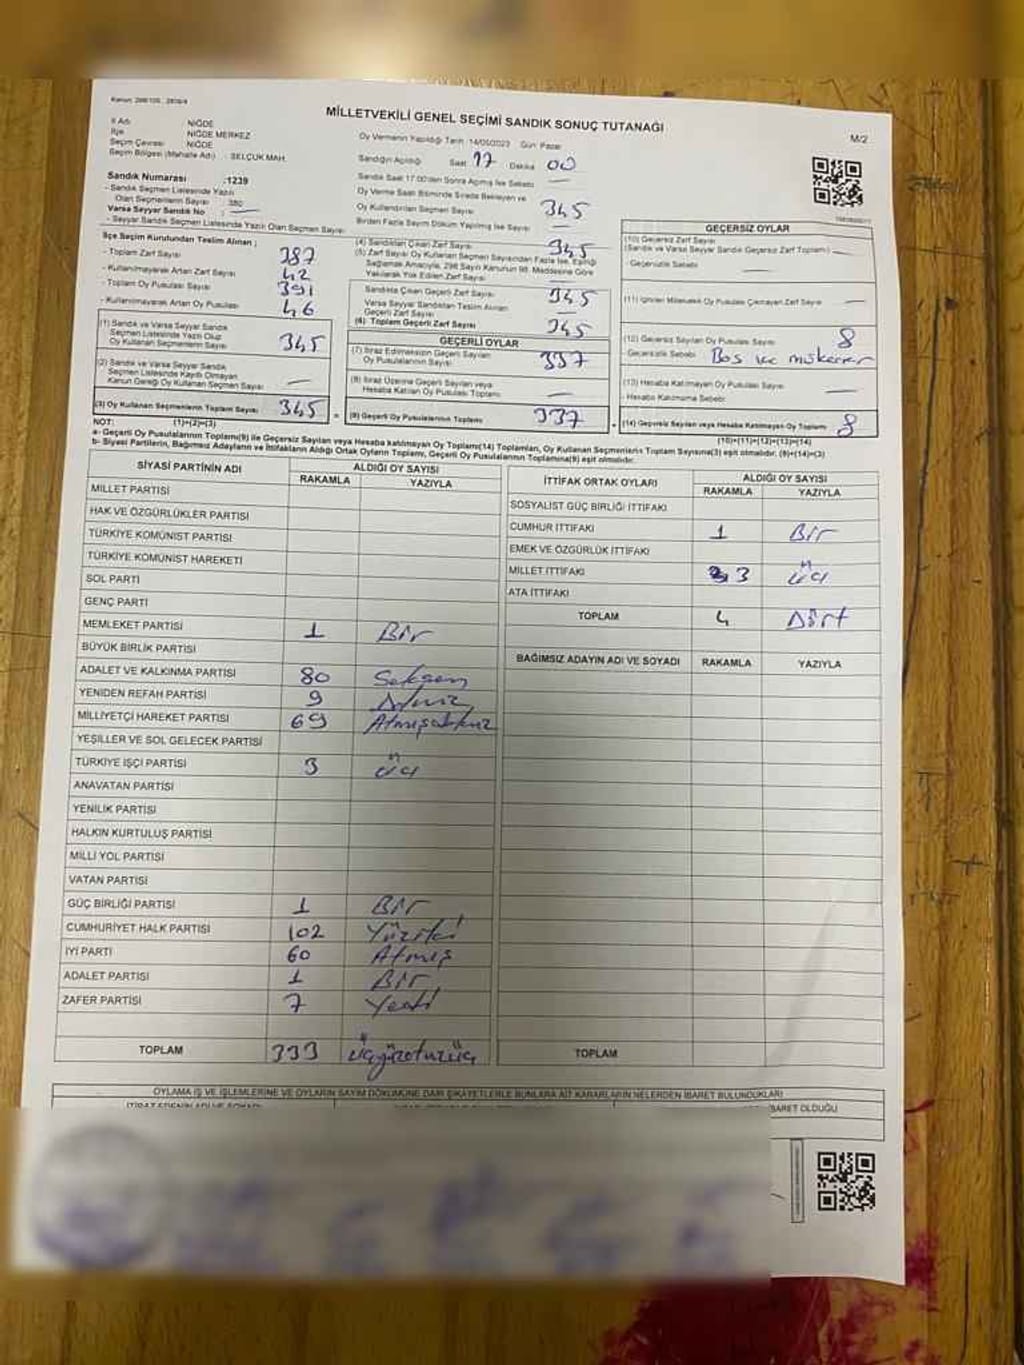 MİLLETVEKİLİ GENEL SEÇİMİ SANDIK SONUÇ TUTANAĞI
M/2
İl Adı NİĞDE
İlçe NİĞDE MERKEZ
Seçim Çevresi NİĞDE
Seçim Bölgesi (Mahalle Adı) : SELÇUK MAH.
Sandık Numarası :1239
- Sandık Seçmen Listesinde Yazılı
Olan Seçmenlerin Sayısı 380
Varsa Seyyar Sandık No :
- Seyyar Sandık Seçmen Listesinde Yazılı Olan Seçmen Sayısı
Oy Vermenin Yapıldığı Tarih 14/05/2023 Gün Pazar
Sandığın Açıldığı Saat 17 Dakika 00
Sandık Saat 17:00'den Sonra Açılmış İse Sebebi
Oy Verme Saati Bitiminde Sırada Bekleyen ve
Oy Kullandırılan Seçmen Sayısı 345
Birden Fazla Sayım Döküm Yapılmış İse Sayısı
İlçe Seçim Kurulundan Teslim Alınan ;
- Toplam Zarf Sayısı 387
- Kullanılmayarak Artan Zarf Sayısı 42
- Toplam Oy Pusulası Sayısı 391
- Kullanılmayarak Artan Oy Pusulası 46
(1) Sandık ve Varsa Seyyar Sandık
Seçmen Listesinde Yazılı Olup
Oy Kullanan Seçmenlerin Sayısı 345
(2) Sandık ve Varsa Seyyar Sandık
Seçmen Listesinde Kayıtlı Olmayan
Kanun Gereği Oy Kullanan Seçmen Sayısı
(3) Oy Kullanan Seçmenlerin Toplam Sayısı 345
(1)+(2)=(3)
(4) Sandıktan Çıkan Zarf Sayısı 345
(5) Zarf Sayısı Oy Kullanan Seçmen Sayısından Fazla İse, Eşitliği
Sağlamak Amacıyla, 298 Sayılı Kanunun 98. Maddesine Göre
Yakılarak Yok Edilen Zarf Sayısı
Sandıkta Çıkan Geçerli Zarf Sayısı 345
Varsa Seyyar Sandıktan Teslim Alınan
Geçerli Zarf Sayısı
(6) Toplam Geçerli Zarf Sayısı 345
GEÇERLİ OYLAR
(7) İtiraz Edilmeksizin Geçerli Sayılan
Oy Pusulalarının Sayısı 337
(8) İtiraz Üzerine Geçerli Sayılan veya
Hesaba Katılan Oy Pusulası Toplamı
(9) Geçerli Oy Pusulalarının Toplamı 337
GEÇERSİZ OYLAR
(10) Geçersiz Zarf Sayısı
(Sandık ve Varsa Seyyar Sandık Geçersiz Zarf Toplamı)
- Geçersizlik Sebebi
(11) İçinden Milletvekili Oy Pusulası Çıkmayan Zarf Sayısı
(12) Geçersiz Sayılan Oy Pusulası Sayısı 8
- Geçersizlik Sebebi Boş ve mükerrer
(13) Hesaba Katılmayan Oy Pusulası Sayısı
- Hesaba Katılmama Sebebi
(14) Geçersiz Sayılan veya Hesaba Katılmayan Oy Toplamı 8
(10)+(11)+(12)+(13)=(14)
NOT:
a- Geçerli Oy Pusulalarının Toplamı(9) ile Geçersiz Sayılan veya Hesaba katılmayan Oy Toplamı(14) Toplamları, Oy Kullanan Seçmenlerin Toplam Sayısına(3) eşit olmalıdır. (9)+(14)=(3)
b- Siyasi Partilerin, Bağımsız Adayların ve İttifakların Aldığı Ortak Oyların Toplamı, Geçerli Oy Pusulalarının Toplamına(9) eşit olmalıdır.
SİYASİ PARTİNİN ADI ALDIĞI OY SAYISI
RAKAMLA YAZIYLA
MİLLET PARTİSİ
HAK VE ÖZGÜRLÜKLER PARTİSİ
TÜRKİYE KOMÜNİST PARTİSİ
TÜRKİYE KOMÜNİST HAREKETİ
SOL PARTİ
GENÇ PARTİ
MEMLEKET PARTİSİ 1 Bir
BÜYÜK BİRLİK PARTİSİ
ADALET VE KALKINMA PARTİSİ 80 Seksen
YENİDEN REFAH PARTİSİ 9 Dokuz
MİLLİYETÇİ HAREKET PARTİSİ 69 Atmışdokuz
YEŞİLLER VE SOL GELECEK PARTİSİ
TÜRKİYE İŞÇİ PARTİSİ 3 üç
ANAVATAN PARTİSİ
YENİLİK PARTİSİ
HALKIN KURTULUŞ PARTİSİ
MİLLİ YOL PARTİSİ
VATAN PARTİSİ
GÜÇ BİRLİĞİ PARTİSİ 1 Bir
CUMHURİYET HALK PARTİSİ 102 Yüziki
İYİ PARTİ 60 Atmış
ADALET PARTİSİ 1 Bir
ZAFER PARTİSİ 7 Yedi
TOPLAM 333 üçyüzotuzüç
İTTİFAK ORTAK OYLARI ALDIĞI OY SAYISI
RAKAMLA YAZIYLA
SOSYALİST GÜÇ BİRLİĞİ İTTİFAKI
CUMHUR İTTİFAKI 1 Bir
EMEK VE ÖZGÜRLÜK İTTİFAKI
MİLLET İTTİFAKI 3 üç
ATA İTTİFAKI
TOPLAM 4 Dört
BAĞIMSIZ ADAYIN ADI VE SOYADI RAKAMLA YAZIYLA
TOPLAM
OYLAMA İŞ VE İŞLEMLERİNE VE OYLARIN SAYIM DÖKÜMÜNE DAİR ŞİKAYETLERLE BUNLARA AİT KARARLARIN NELERDEN İBARET BULUNDUKLARI